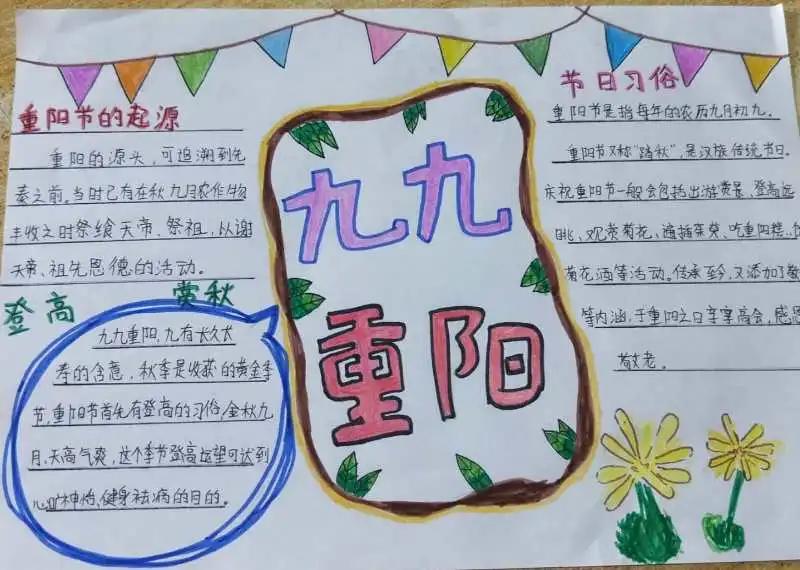 重阳节的起源
重阳的源头，可追溯到先
秦之前。当时已有在秋九月农作物
丰收之时祭飨天帝、祭祖，以谢
天帝、祖先恩德的活动。
登高
赏秋
九九重阳，九有长久长
寿的含意，秋季是收获的黄金季
节，重阳节首先有登高的习俗，金秋九
月，天高气爽，这个季节登高远望可达到
心旷神怡、健身祛病的目的。
九九
重阳
节日习俗
重阳节是指每年的农历九月初九。
重阳节又称"踏秋"，是汉族传统节日。
庆祝重阳节一般会包括出游赏景、登高远
眺、观赏菊花、遍插茱萸、吃重阳糕、
菊花酒等活动。传承至今，又添加了敬
等内涵，于重阳之日享宴高会，感恩
敬老。